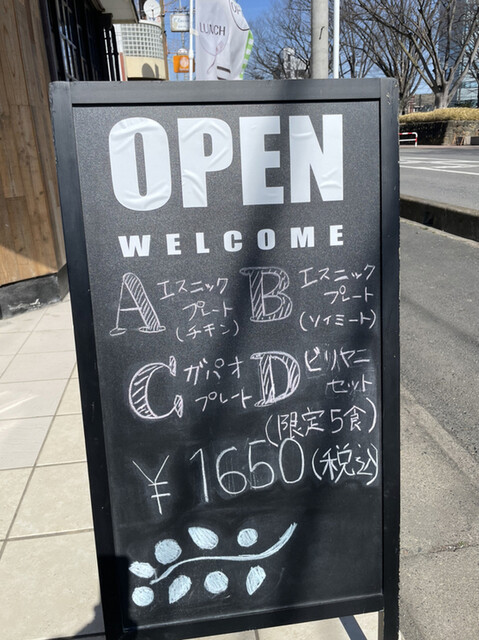 LUNCH
OPEN
WELCOME
A エスニック
プレート
(チキン)
B エスニック
プレート
(ソイミート)
C ガパオ
プレート
D ビリヤニ
セット
(限定5食)
¥1650(税込)